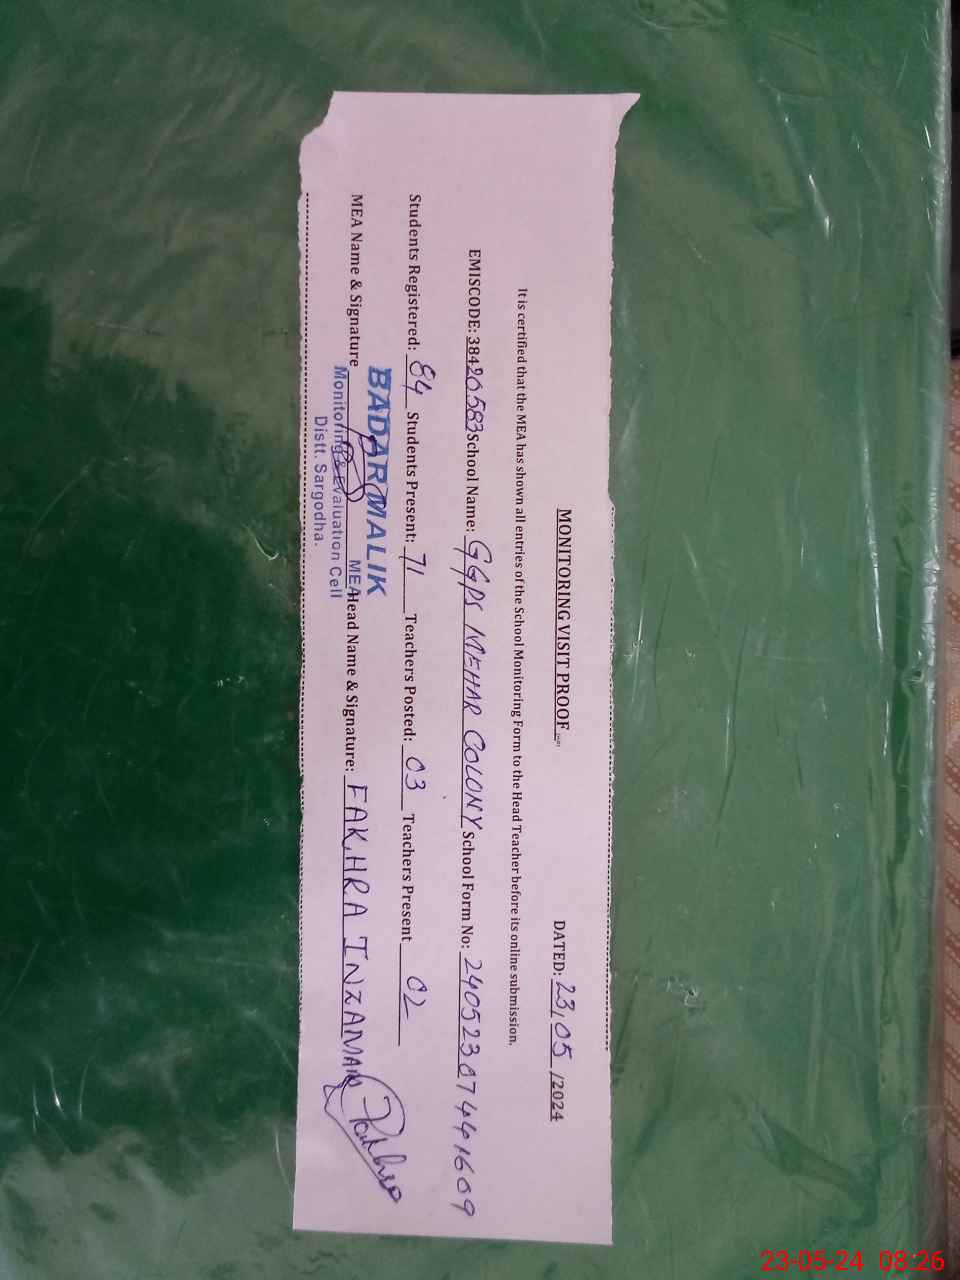 MONITORING VISIT PROOF
DATED: 23/05/2024
It is certified that the MEA has shown all entries of the School Monitoring Form to the Head Teacher before its online submission.
EMISCODE: 38420583 School Name: GGPS MEHAR COLONY School Form No: 24052307441609
Students Registered: 84 Students Present: 71 Teachers Posted: 03 Teachers Present 02
MEA Name & Signature Head Name & Signature: FAKHRA INZAMAM
BADAR MALIK
MEA
Monitoring & Evaluation Cell
Distt. Sargodha.
23-05-24 08:26